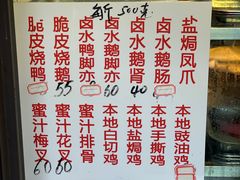 500
脆皮烧鸭
脆皮烧鹅
55
卤水鸭脚亦
卤水鹅脚亦
60
卤水鹅肾
40
卤水鹅肠
盐焗凤爪
蜜汁梅叉
60
蜜汁花叉
60
蜜汁排骨
本地白切鸡
本地盐焗鸡
本地手撕鸡
本地豉油鸡